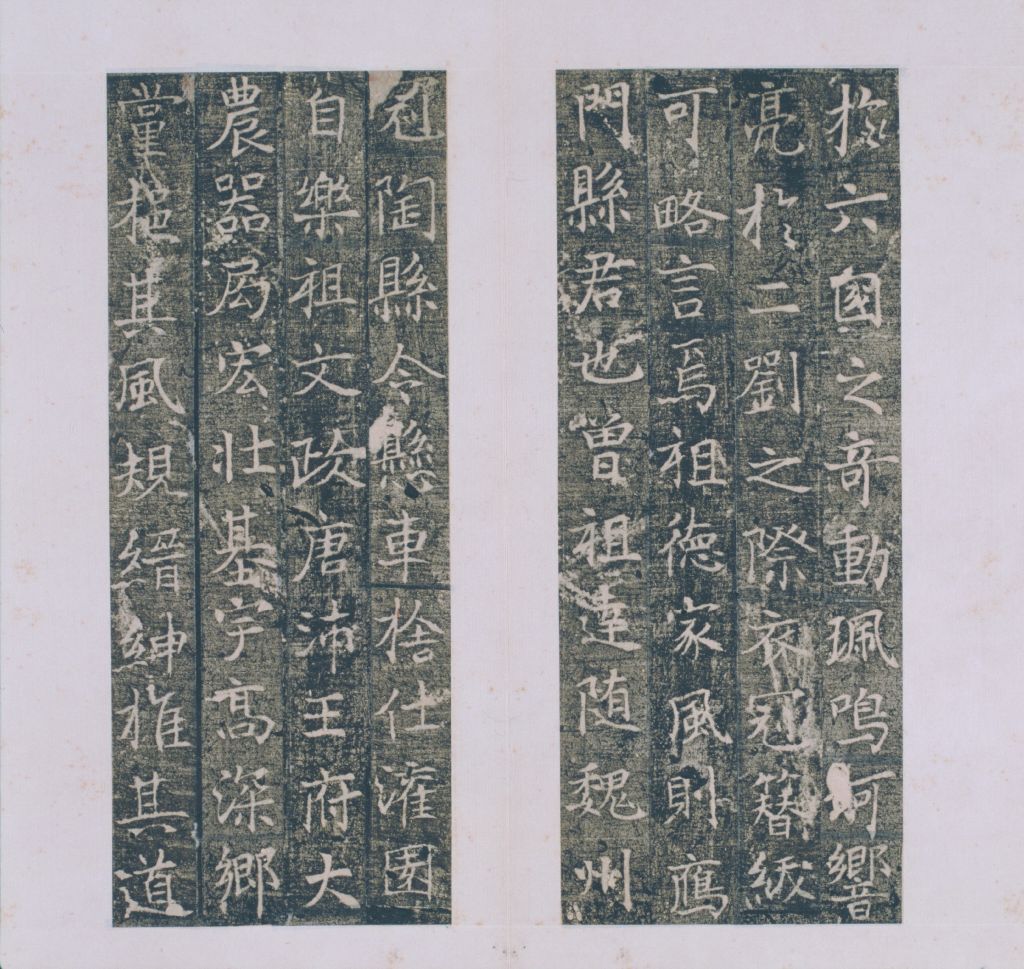 於六國之奇動珮鳴珂響
亮於二劉之際衣冠簪紱
可略言焉祖德家風則鴈
門縣君也曾祖達随魏州
冠陶縣令懸車捨仕灌園
自樂祖文政唐沛王府大
農器局宏壯基宇高深鄉
黨梃其風規縉紳推其道